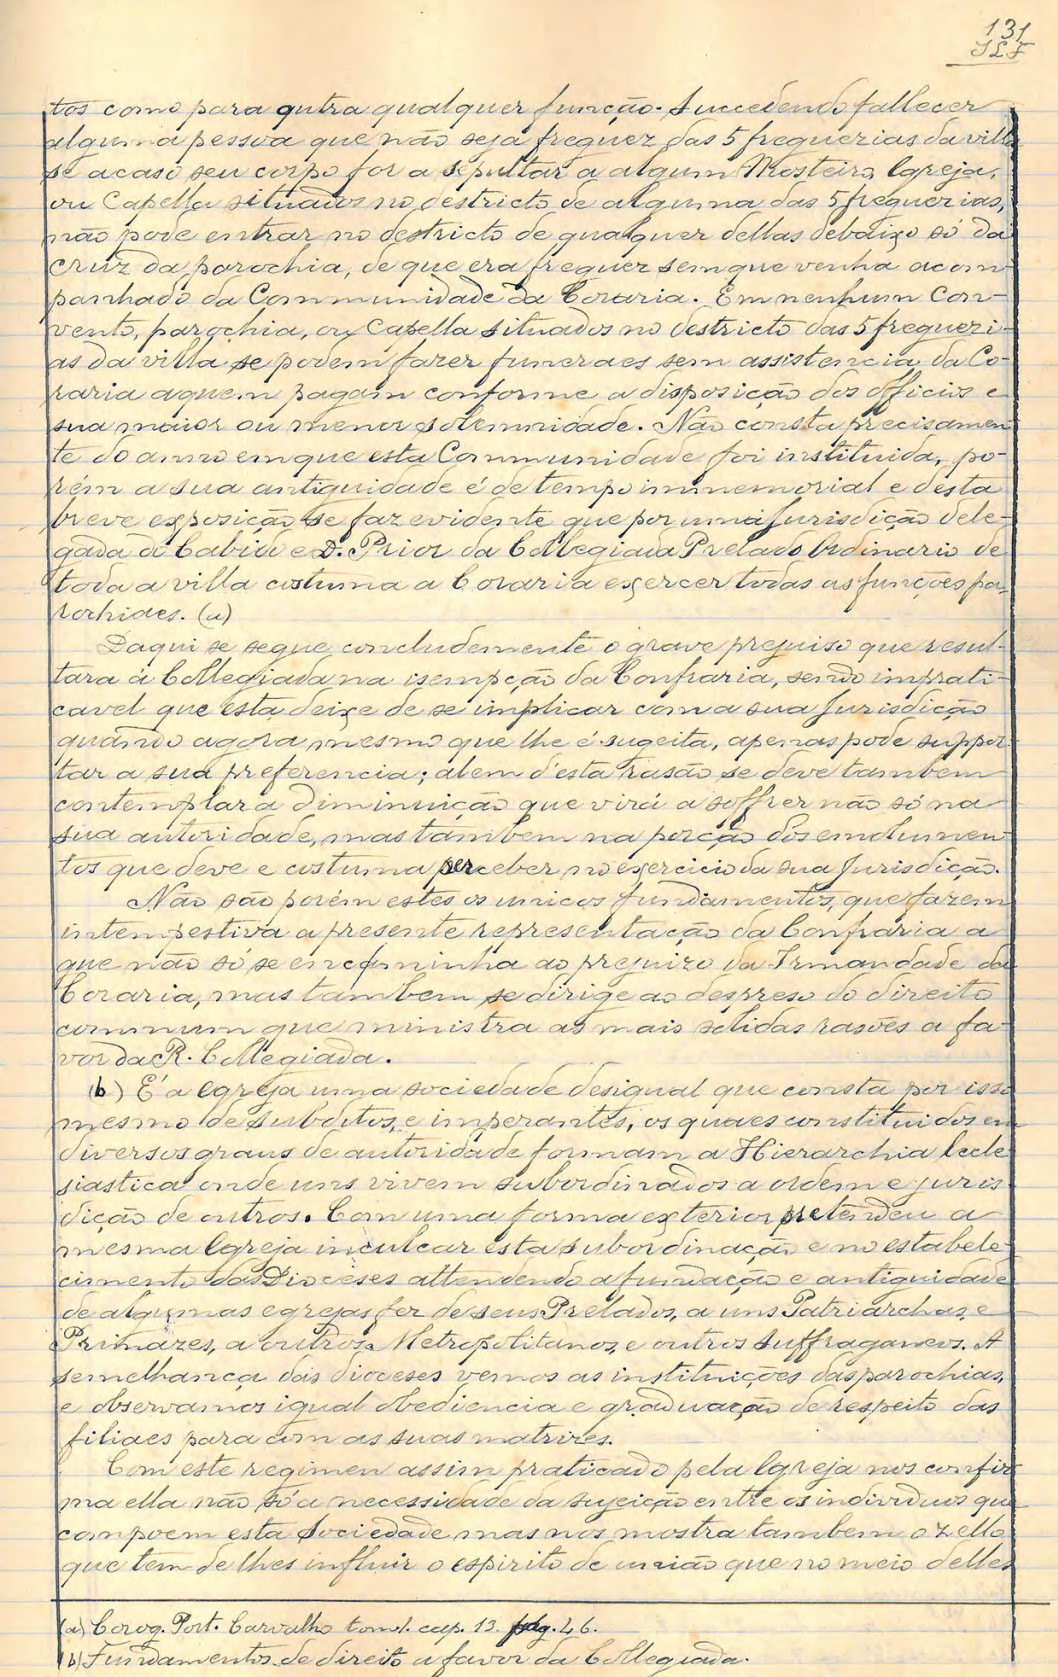 131
tos como para qutra qualquer funcção. Succedendo fallecer
alguma pessoa que não seja freguez das 5 freguezias da villa
se acaso seu corpo for a sepultar a algum Mosteiro, Egreja,
ou Capella situados no destricto de alguma das 5 freguezias,
não pode entrar no destricto de qualquer dellas debaixo só da
cruz da parochia, de que era freguez sem que venha acom-
panhado da Communidade da Coraria. Em nenhum Con-
vento, parochia, ou Capella situados no destricto das 5 freguezi-
as da villa se podem fazer funeraes sem assistencia da Co-
raria a quem pagam conforme a disposição dos officios e
sua maior ou menor solemnidade. Não consta precisamen
te do anno em que esta Communidade foi instituida, po-
rém a sua antiguidade é de tempo immemorial e desta
breve exposição se faz evidente que por uma Jurisdição dele-
gada do Cabido e D. Prior da Collegiada Prelado Ordinario de
toda a villa costuma a Coraria exercer todas as funções pa-
rochiaes. (a)
Daqui se segue concludemente o grave prejuiso que resul-
tara á Collegiada na isempção da Confraria, sendo imprati-
cavel que esta deixe de se implicar com a sua Jurisdição
quando agora mesmo que lhe é sugeita, apenas pode suppor-
tar a sua preferencia; alem d'esta rasão se deve tambem
contemplar a diminuição que virá a soffrer não só na
sua autoridade, mas tambem na porção dos emolumen-
tos que deve e costuma perceber no exercicio da sua Jurisdição.
Não são porém estes os unicos fundamentos, que fazem
intempestiva a presente representação da Confraria a
que não só se encaminha ao prejuizo da Irmandade da
Coraria, mas tambem se dirige ao despreso do direito
commum que ministra as mais solidas rasões a fa-
vor da R. Collegiada.
(b) É a egreja uma sociedade desigual que consta por isso
mesmo de subditos, e imperantes, os quaes constituidos em
diversos graus de autoridade formam a Hierarchia Eccle
siastica onde uns vivem subordinados a ordem e juris
dição de outros. Com uma forma exterior pretendeu a
mesma Egreja inculcar esta subordinação e no estabele-
cimento das Dioceses attendendo a fundação e antiguidade
de algumas egrejas fez de seus Prelados, a uns Patriarchas, e
Primazes, a outros Metropolitanos, e outros Suffraganeos. A
semelhança das dioceses vemos as instituições das parochias,
e observamos igual obediencia e graduação de respeito das
filiaes para com as suas matrizes.
Com este regimen assim praticado pela Egreja nos confir
ma ella não só a necessidade da sujeição entre os individuos que
compoem esta Sociedade mas nos mostra tambem o zello
que tem de lhes influir o espirito de união que no meio delles
(a) Corog. Port. Carvalho tom 1. cap. 13. pag. 46.
(b) Fundamentos de direito a favor da Collegiada.